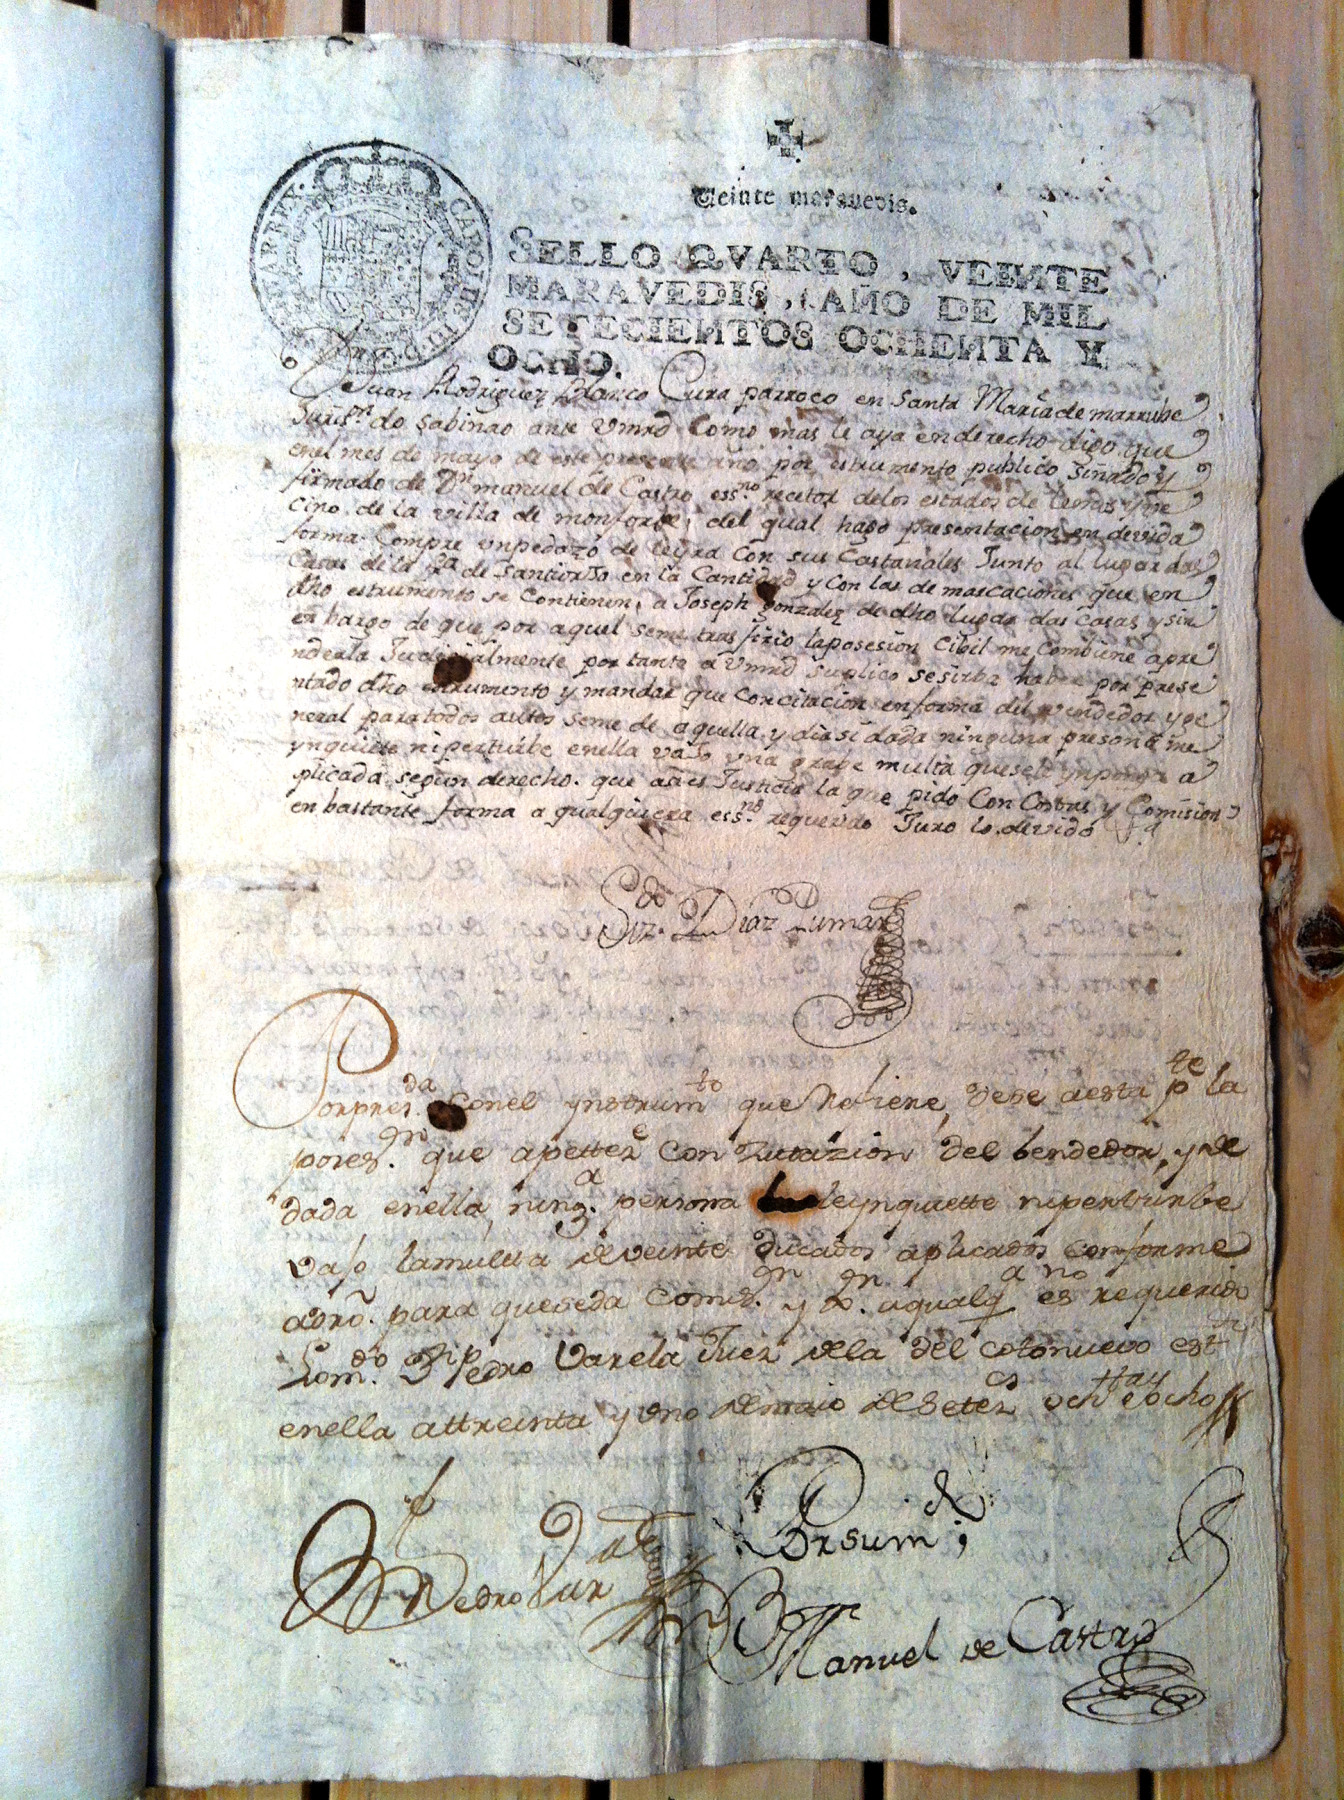 Veinte maravedis.
SELLO QVARTO, VEINTE
MARAVEDIS, AÑO DE MIL
SETECIENTOS OCHENTA Y
OCHO.
CAROLUS III D G HISPANIAR REX
Juan Rodriguez Blanco Cura parroco en Santa Maria de marrube
Jurison. do Sabinao ante Vmrd Como mas le aya en derecho digo que
en el mes de mayo de este presente año por estrumento publico siñado y
firmado de Dn manuel de Castro essno. recetor de los estados de lemos y ve
cino de la villa de monforte, del qual hago presentacion en devida
forma. Compre un pedazo de leyra con sus Castañales Junto al lugar das
Casas de la fra de Santiorjo en la Cantidad y con las demarcaciones que en
dho estrumento se Contienen, a Joseph gonzalez de dho lugar das Casas y sin
enbargo de que por aquel seme trasfirio la posesion Cibil me Combiene apre
nderla Judicialmente por tanto a Vmrd suplico se sirba haber por prese
ntado dho estrumento y mandar que Con citacion en forma del vendedor y ge
neral para todos autos seme de aquella y di asi dada ninguna presona me
ynquiete ni perturbe en ella vajo una grabe multa que sele ynponga a
plicada segun derecho. que asi es Justicia la que pido Con Costas y Comision
en bastante forma a qualquera essno. requerido Juro lo devido
Liz.do Diaz Lumar
Por presda. Con el ynstrumto que refiere, dese a esta pte la
posesn. que apetteze con zitazion del bendedor, y de
dada en ella, ninga. persona le ynquiette ni perturbe
vajo la multa de veinte ducados aplicados conforme
a dro. para que se da Comisn. y on. a qualqa esno requerido
Lo mdo. Dn Pedro Varela Juez de la del coto nuevo estte
en ella a ttreinta y uno de maio de setezs ochtta y ocho
Pedro Var
Por su md;
Manuel de Castro